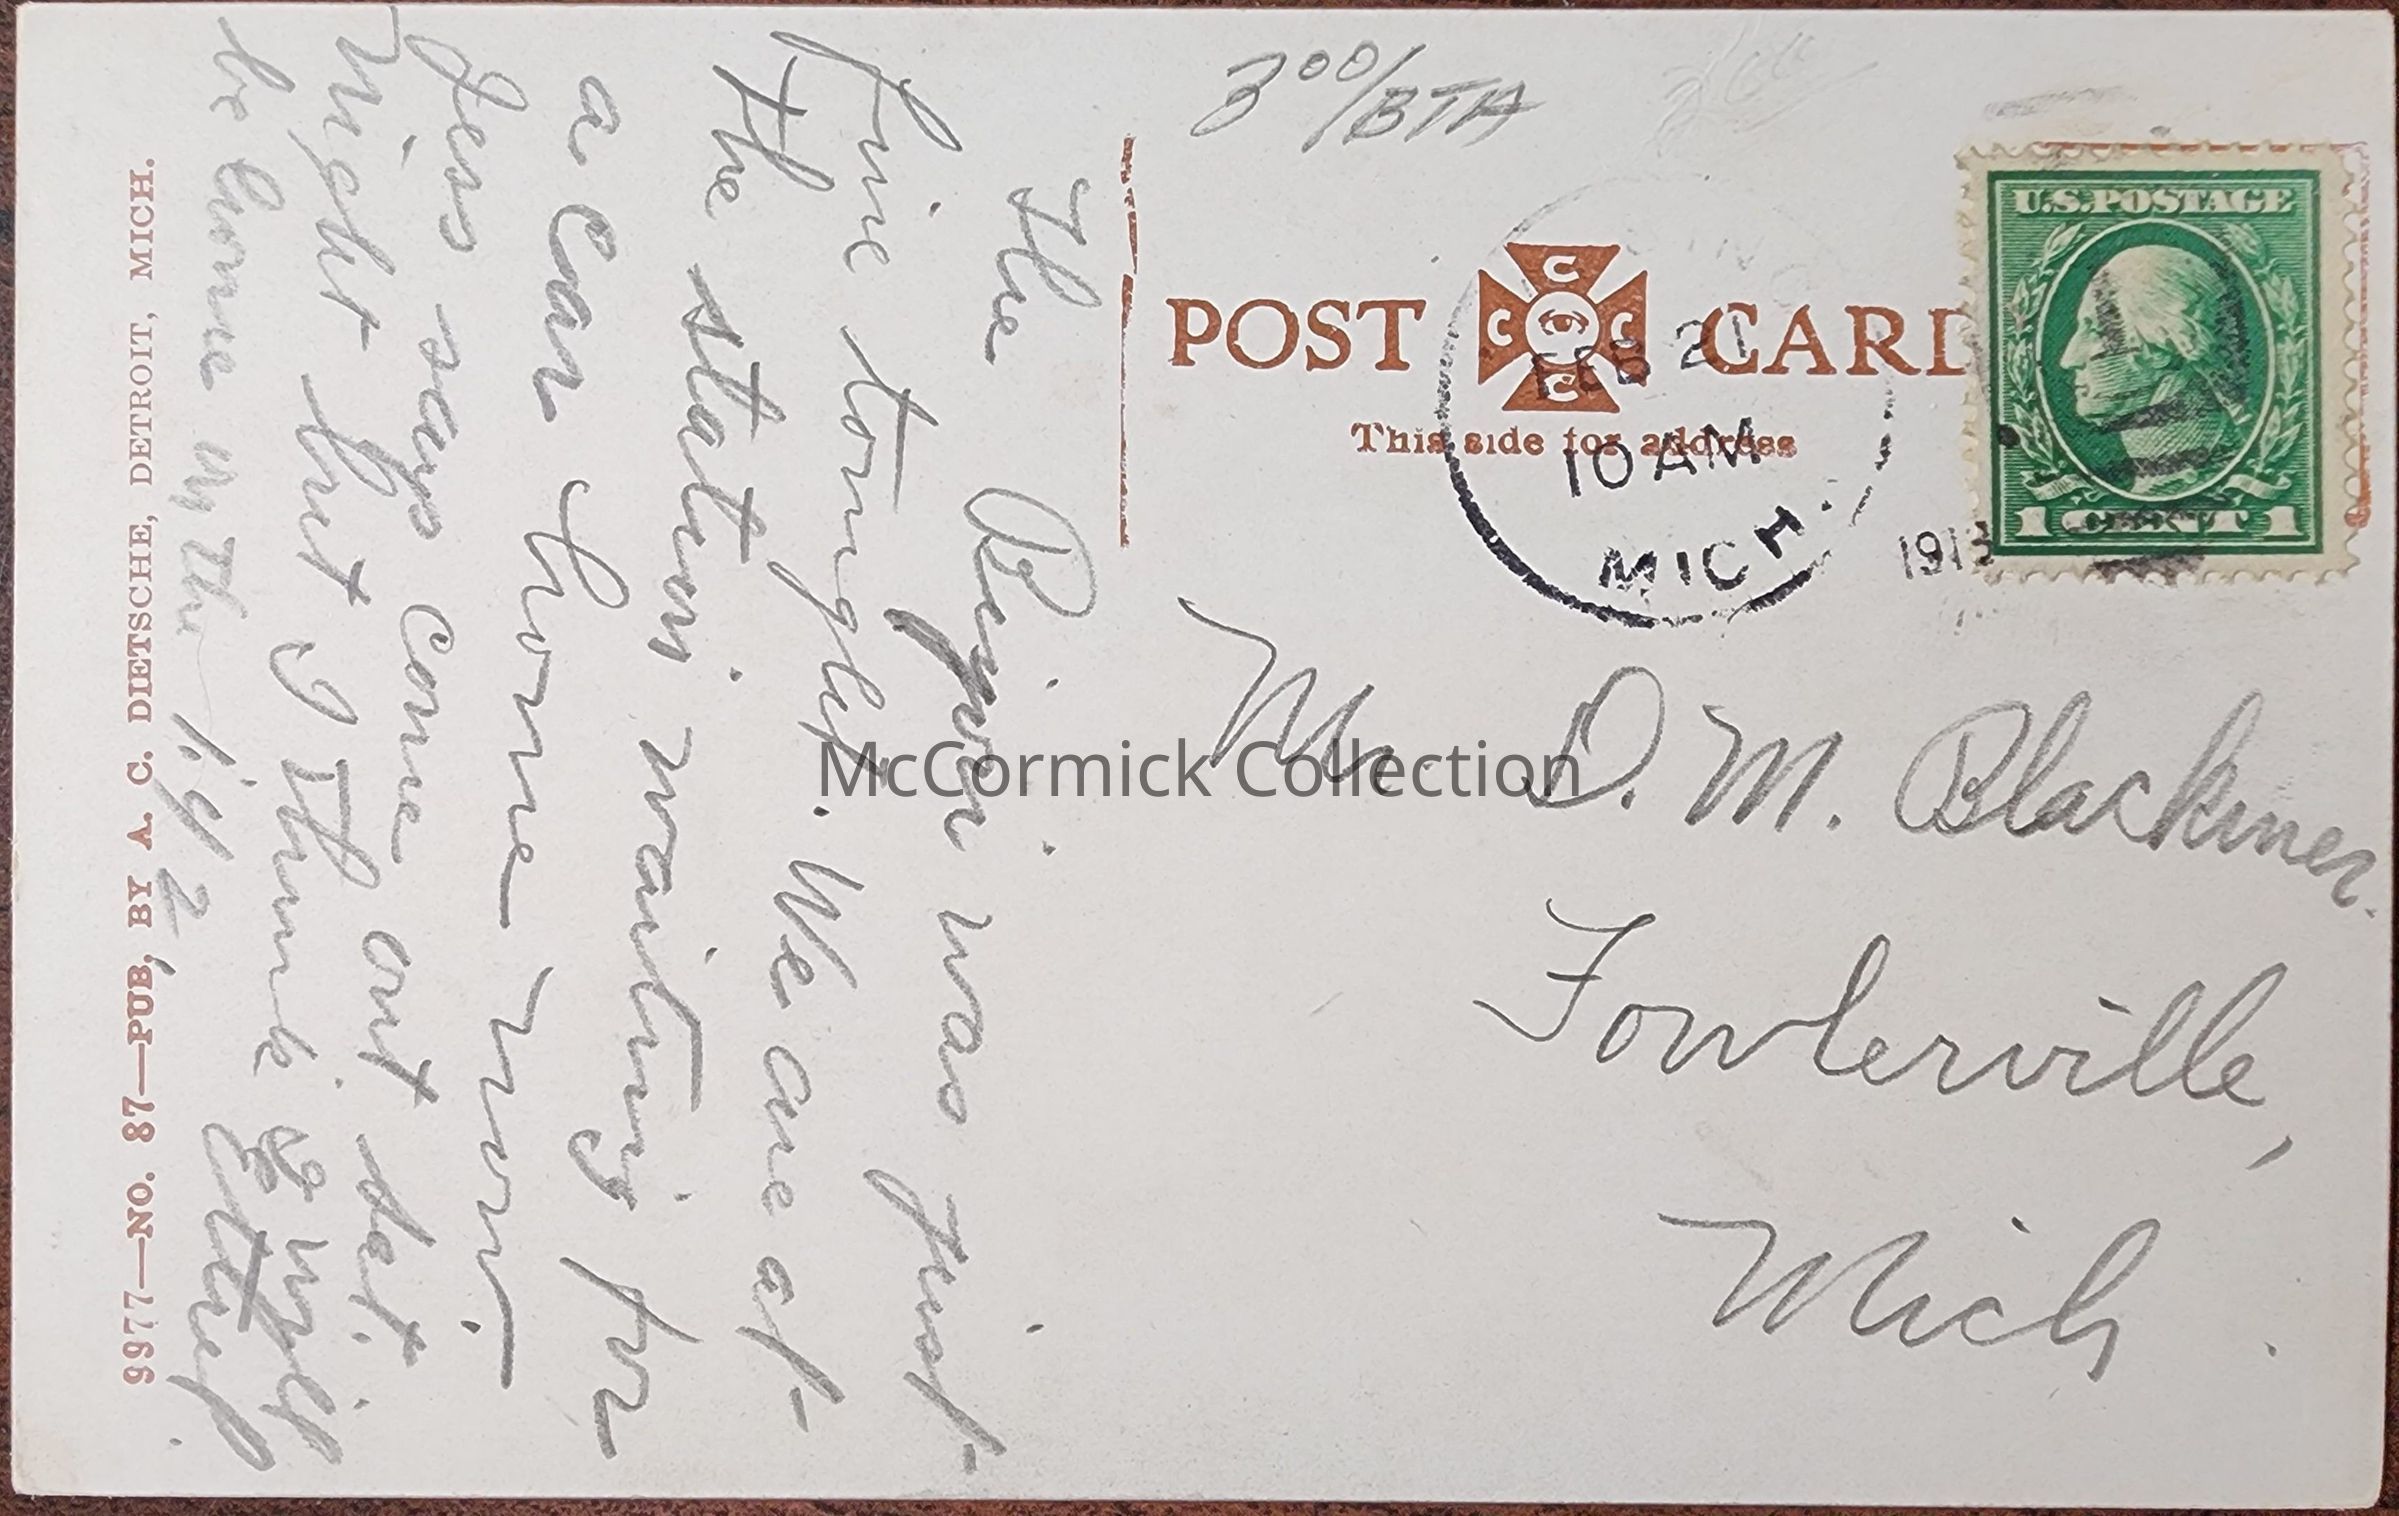 The Bijou was just
fine tonight. We are at
the station waiting for
a car home now.
Jess says come out sat.
night but I think I will
be home on the 1.92
9977—NO. 87—PUB, BY A. C. DIETSCHE, DETROIT, MICH.
3⁰⁰/BTH
POST CARD
C C C C
This side for address
FEB 21
10 AM
MICH.
1913
U.S. POSTAGE
1 CENT 1
Mr D. M. Blackmer.
Fowlerville,
Mich.
McCormick Collection